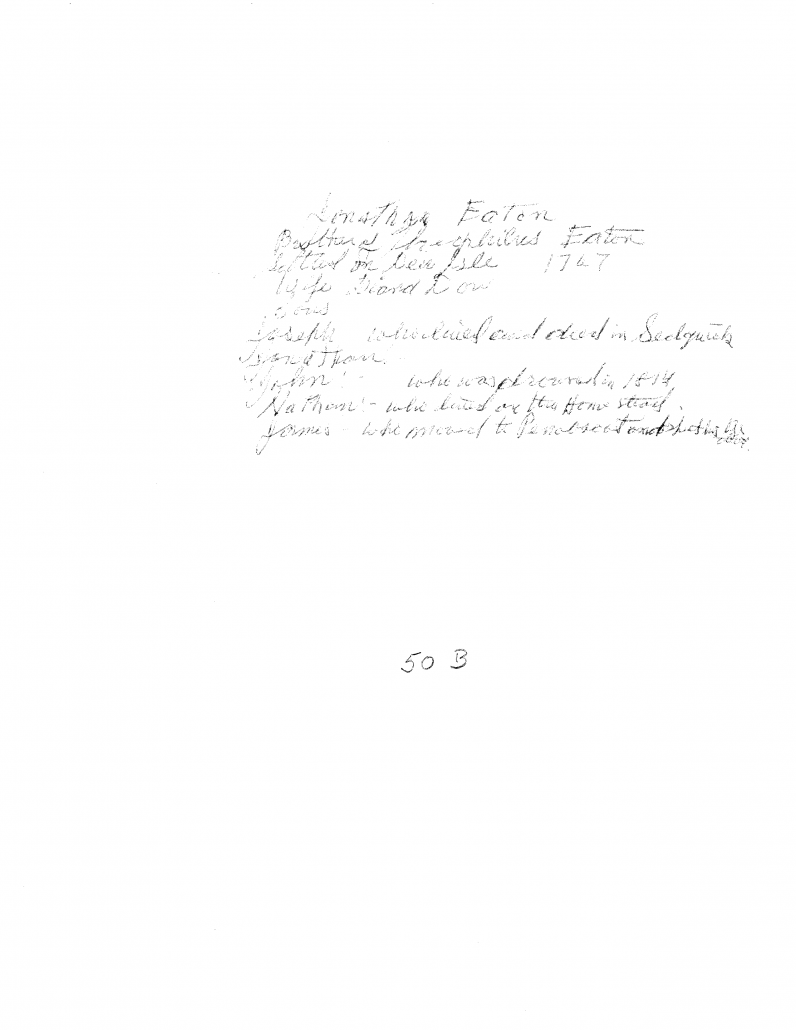 Jonathan Eaton
Brother Theophilus Eaton
Settled on Deer Isle 1767
Wife Dow
Sons
Joseph who lived and died in Sedgwick
Jonathan.
John :- who was drowned in 1814,
Nathan :- who lived on the Home stead.
James - who moved to Penobscot and
50 B